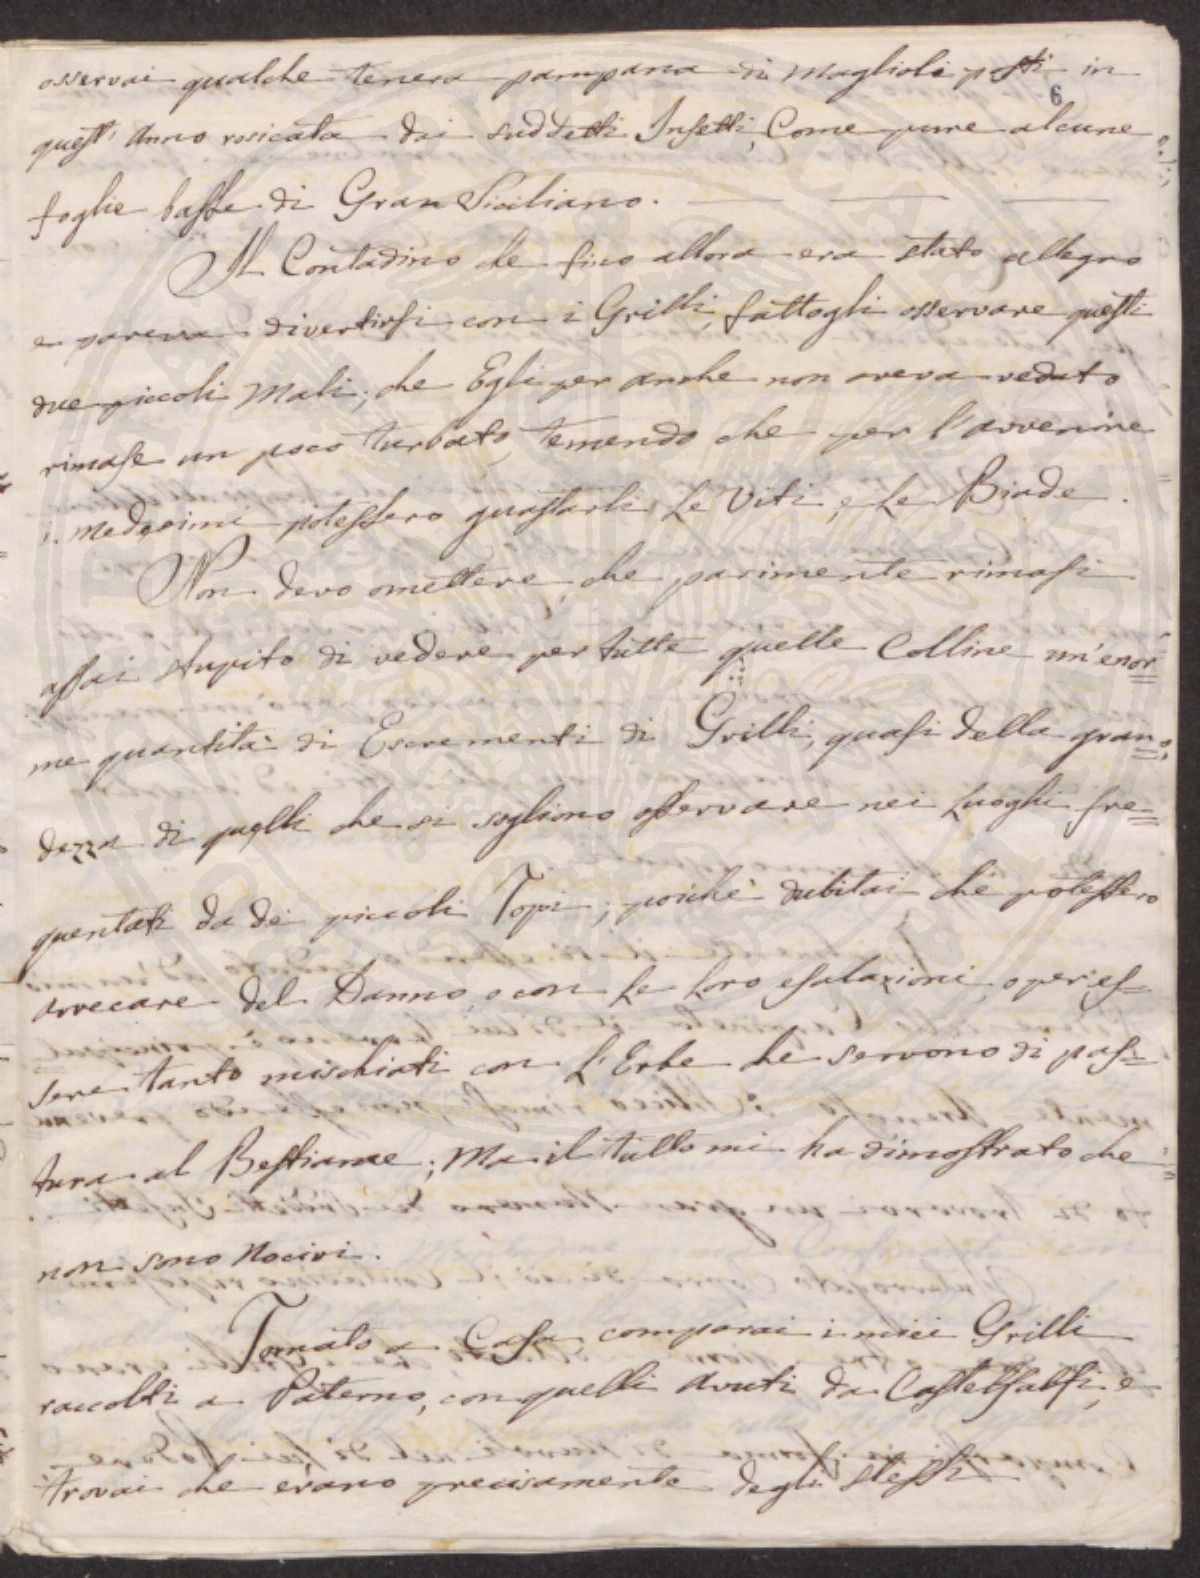 osservai qualche tenera pampana di Maglioli posti in
6
quest'Anno rosicata dai suddetti Insetti, Come pure alcune
foglie basse di Gran Siciliano.
Il Contadino che fino allora era stato allegro
e pareva divertirsi con i Grilli, fattogli osservare questi
due piccoli Mali, che Egli per anche non aveva veduto
rimase un poco turbato, temendo che per l'avvenire
i medesimi potessero guastarli le Viti, e le Biade.
Non devo omettere, che parimente rimasi
assai stupito di vedere per tutte quelle Colline un'enor=
me quantità di Escrementi di Grilli, quasi della gran=
dezza di quelli che si sogliono osservare nei Luoghi fre=
quentati da dei piccoli Topi; poiché dubitai che potessero
arrecare del Danno, o con le loro esalazioni, o per es=
sere tanto mischiati con l'Erbe che servono di pas=
tura al Bestiame; Ma il tutto mi ha dimostrato che
non sono Nocivi.
Tornato a Casa, comparai i miei Grilli
raccolti a Paterno, con quelli avuti da Castelfalfi, e
trovai che erano precisamente degli stessi